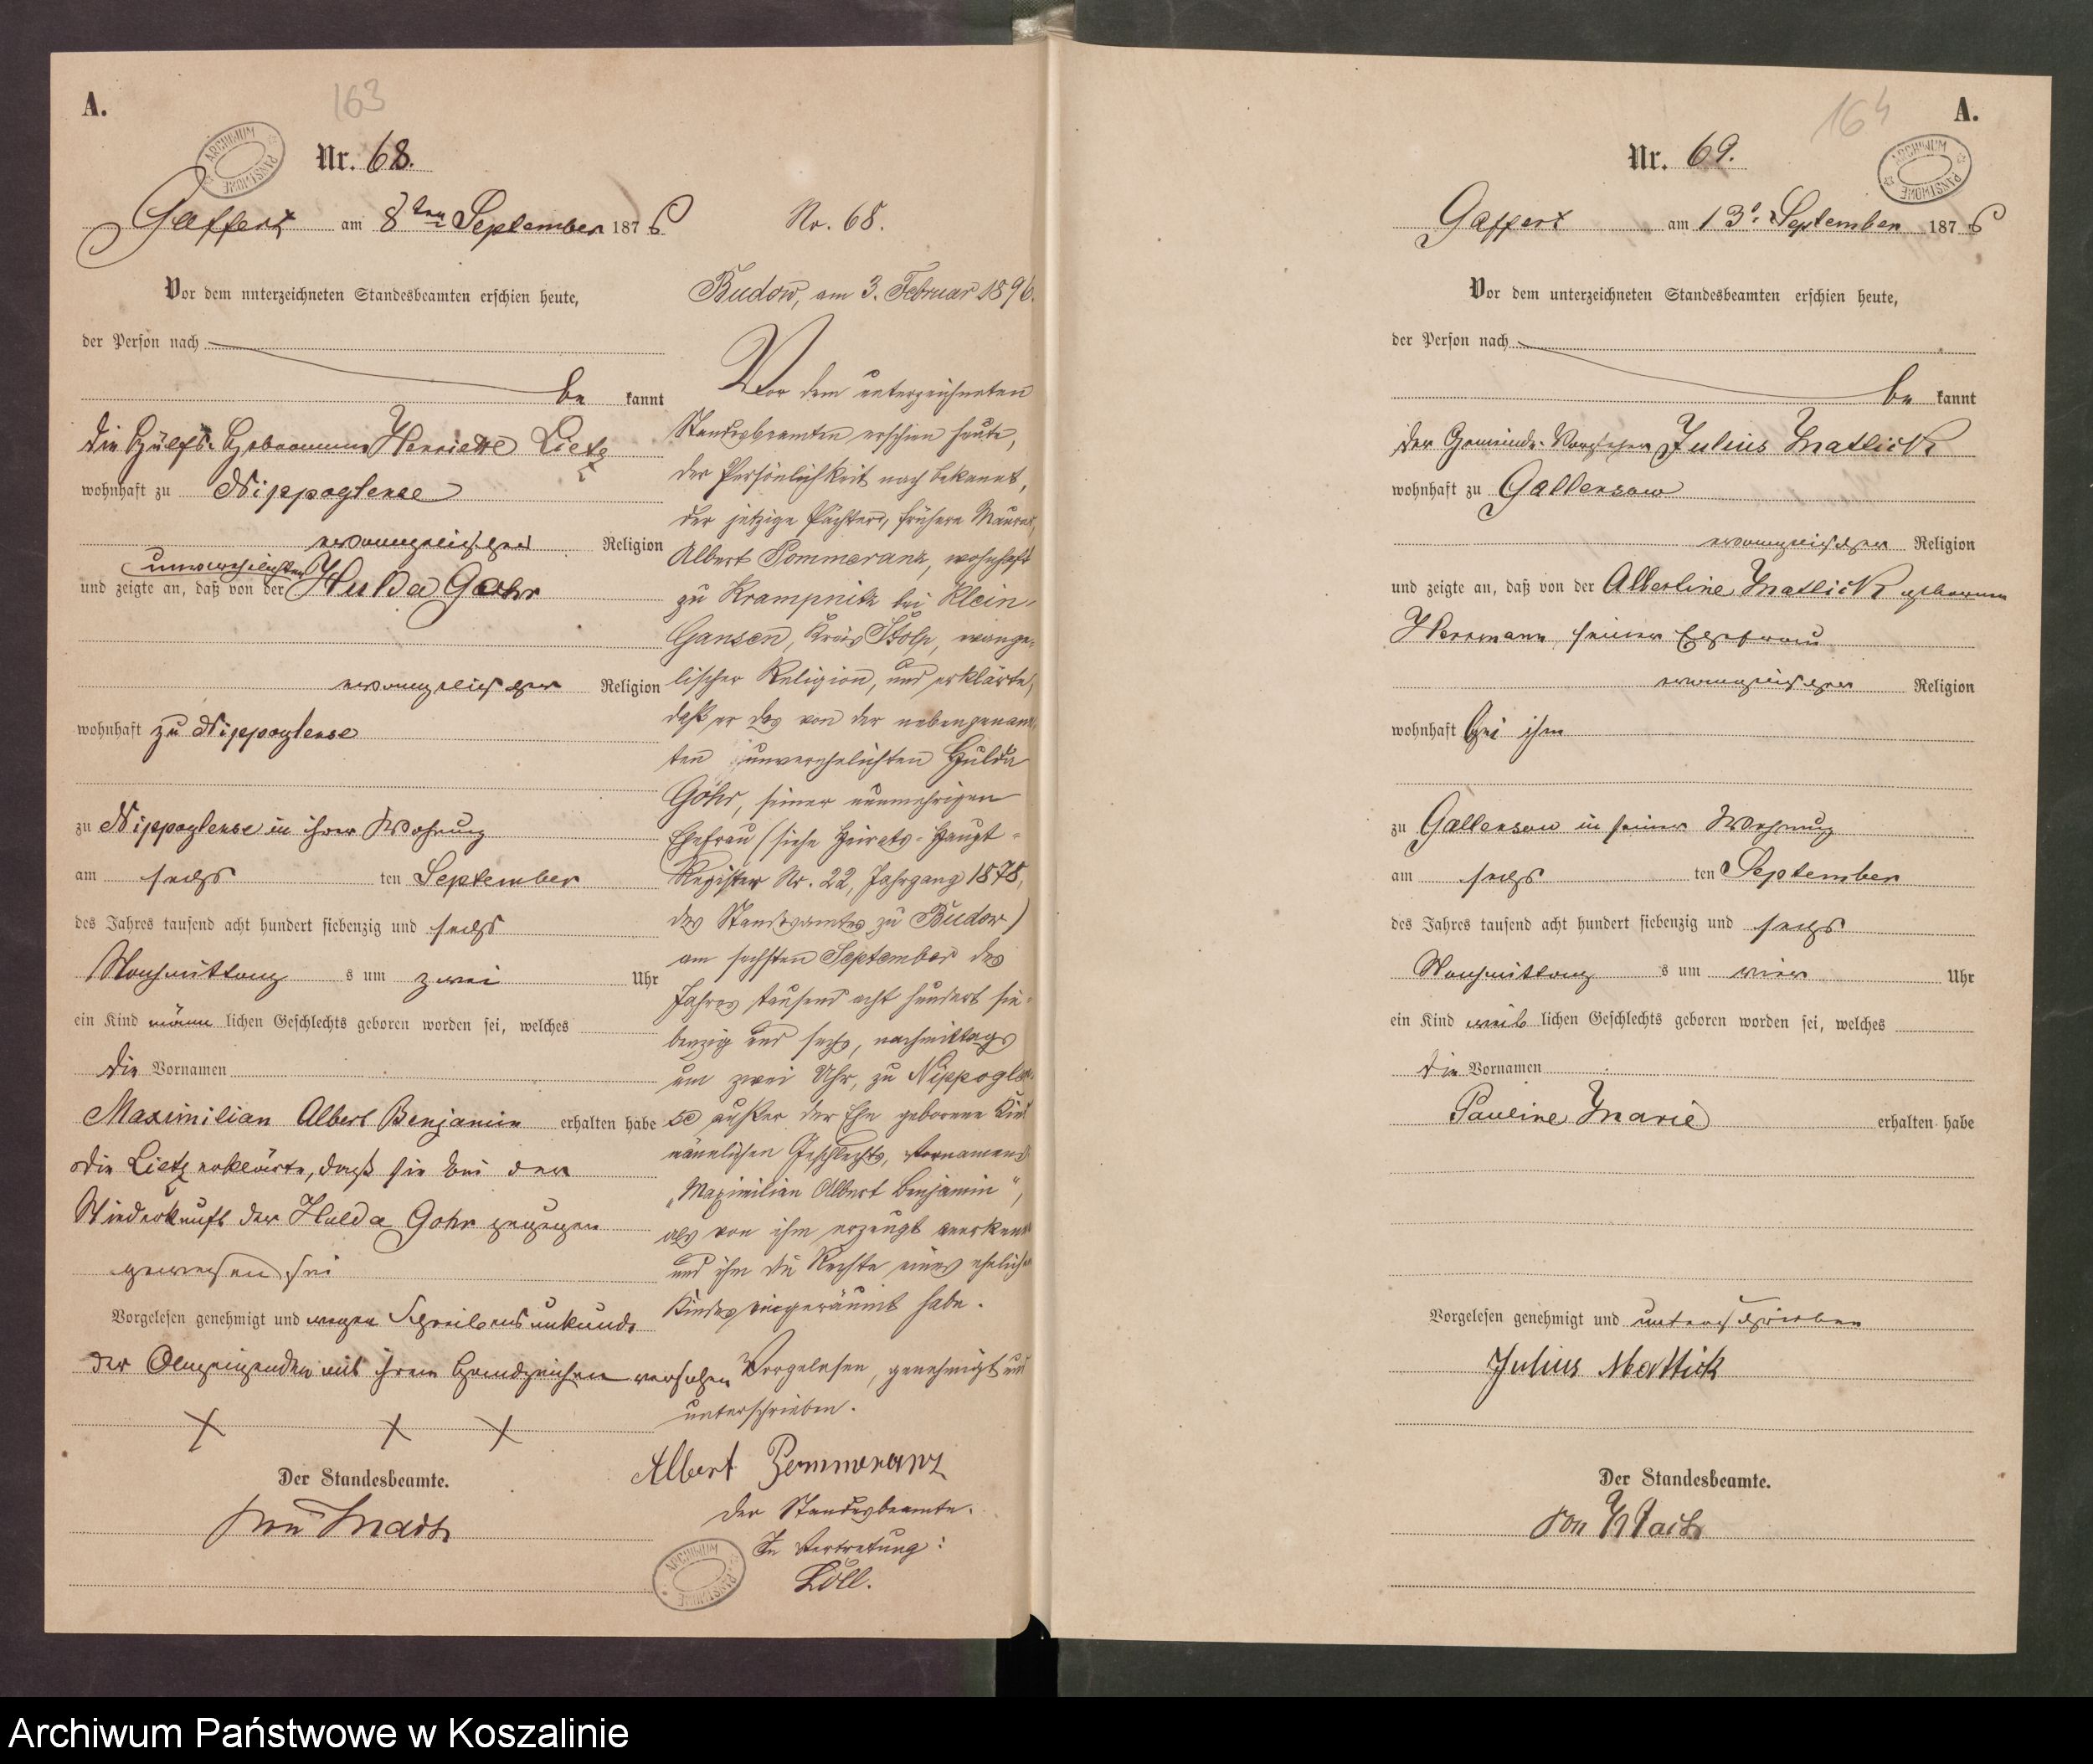 A.
163
Nr. 68.
Gaffert am 8ten September 1876
Vor dem unterzeichneten Standesbeamten erschien heute,
der Person nach
be kannt
die Hülfs-Hebamme Henriette Lietz
wohnhaft zu Nippoglense
evangelischer Religion
unverehelichten
und zeigte an, daß von der Hulda Gohr
evangelischer Religion
wohnhaft zu Nippoglense
zu Nippoglense in ihrer Wohnung
am sechs ten September
des Jahres tausend acht hundert siebenzig und sechs
Nachmittag s um zwei Uhr
ein Kind männ lichen Geschlechts geboren worden sei, welches
die Vornamen
Maximilian Albert Benjamin erhalten habe
die Lietz erklärte, daß sie bei der
Niederkunft der Hulda Gohr zugegen
gewesen sei
Vorgelesen genehmigt und wegen Schreibensunkunde
der Anzeigenden mit ihrem Handzeichen versehen
X X X
Der Standesbeamte.
von
No. 68.
Budow, am 3. Februar 1896.
Vor dem unterzeichneten
Standesbeamten erschien heute,
der Persönlichkeit nach bekannt,
der jetzige Pächter, frühere Maurer,
Albert Pommeranz, wohnhaft
zu Krampnitz bei Klein-
Gansen, Kreis Stolp, evange-
lischer Religion, und erklärte,
daß er das von der nebengenann-
ten unverehelichten Hulda
Gohr, seiner nunmehrigen
Ehefrau (siehe Heirats-Haupt-
Register Nr. 22, Jahrgang 1878,
des Standesamtes zu Budow)
am sechsten September des
Jahres tausend acht hundert sie-
benzig und sechs, nachmittags
um zwei Uhr, zu Nippoglen-
se außer der Ehe geborene Kind
männlichen Geschlechts, Vornamens
„Maximilian Albert Benjamin",
als von ihm erzeugt anerkannt
und ihm die Rechte eines ehelichen
Kindes eingeräumt habe.
Vorgelesen, genehmigt und
unterschrieben.
Albert Pommeranz
Der Standesbeamte.
In Vertretung:
Löll.
164
A.
Nr. 69.
Gaffert am 13t September 1876
Vor dem unterzeichneten Standesbeamten erschien heute,
der Person nach
be kannt
der Gemeinde-Vorsteher Julius Mattick
wohnhaft zu Gallensow
evangelischer Religion
und zeigte an, daß von der Albertine Mattick geborenen
Herrmann, seiner Ehefrau
evangelischer Religion
wohnhaft bei ihm
zu Gallensow in seiner Wohnung
am sechs ten September
des Jahres tausend acht hundert siebenzig und sechs
Nachmittag s um vier Uhr
ein Kind weib lichen Geschlechts geboren worden sei, welches
die Vornamen
Pauline Marie erhalten habe
Vorgelesen genehmigt und unterschrieben
Julius Mattick
Der Standesbeamte.
von
ARCHIWUM PAŃSTWOWE
Archiwum Państwowe w Koszalinie